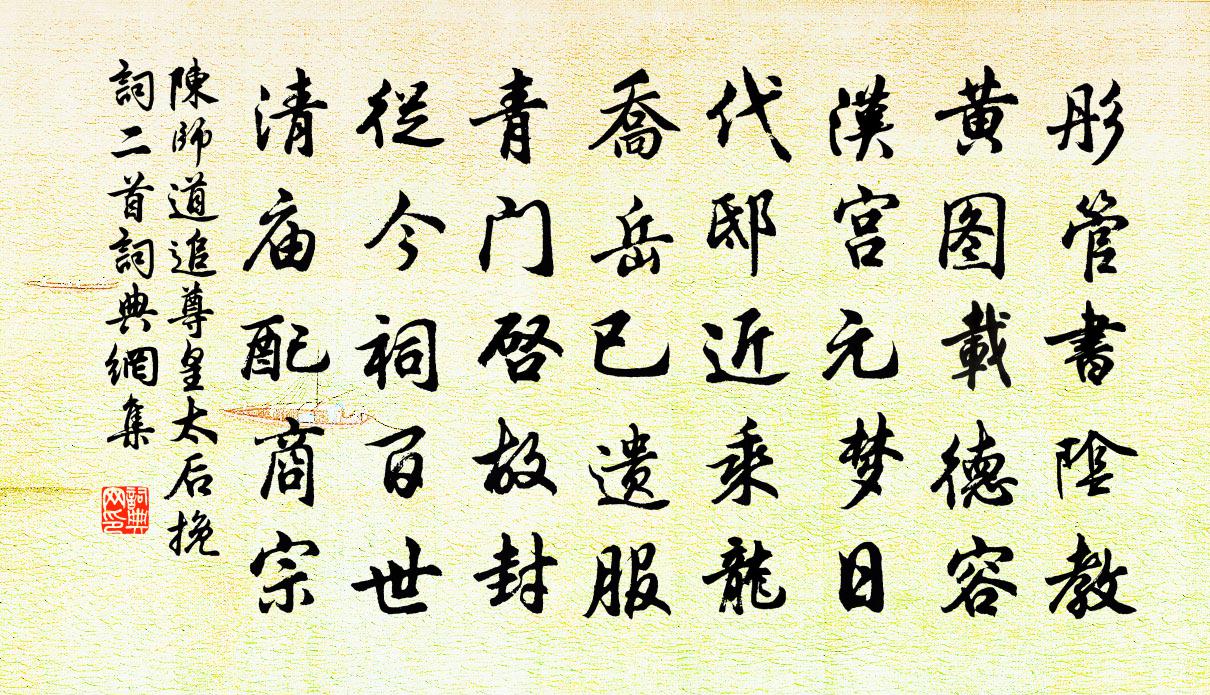 彤管書陰教
黄图載德容
漢宫元梦日
代邸近乘龍
喬岳已遗服
青门啓故封
從今祠百世
清庙配商宗
陳師道追尊皇太后挽
詞二首詞典網集
詞典
网印